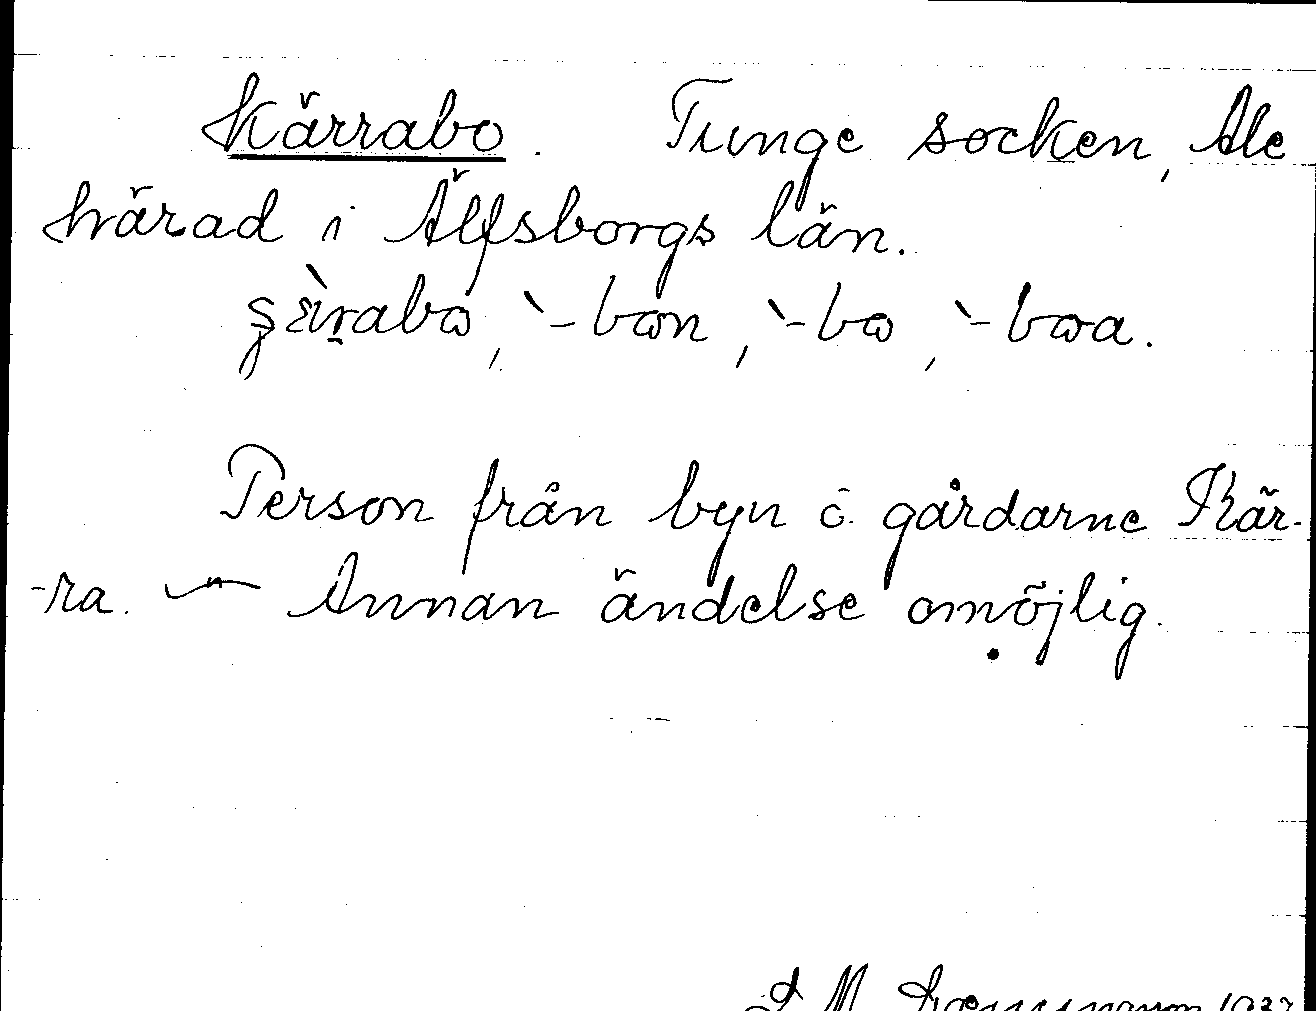 Kärrabo. Tunge socken, Ale
härad i Älfsborgs län.
-bon, -bo, -boa.
Person från byn o. gårdarne Kär-
-ra. — Annan ändelse omöjlig.
1937